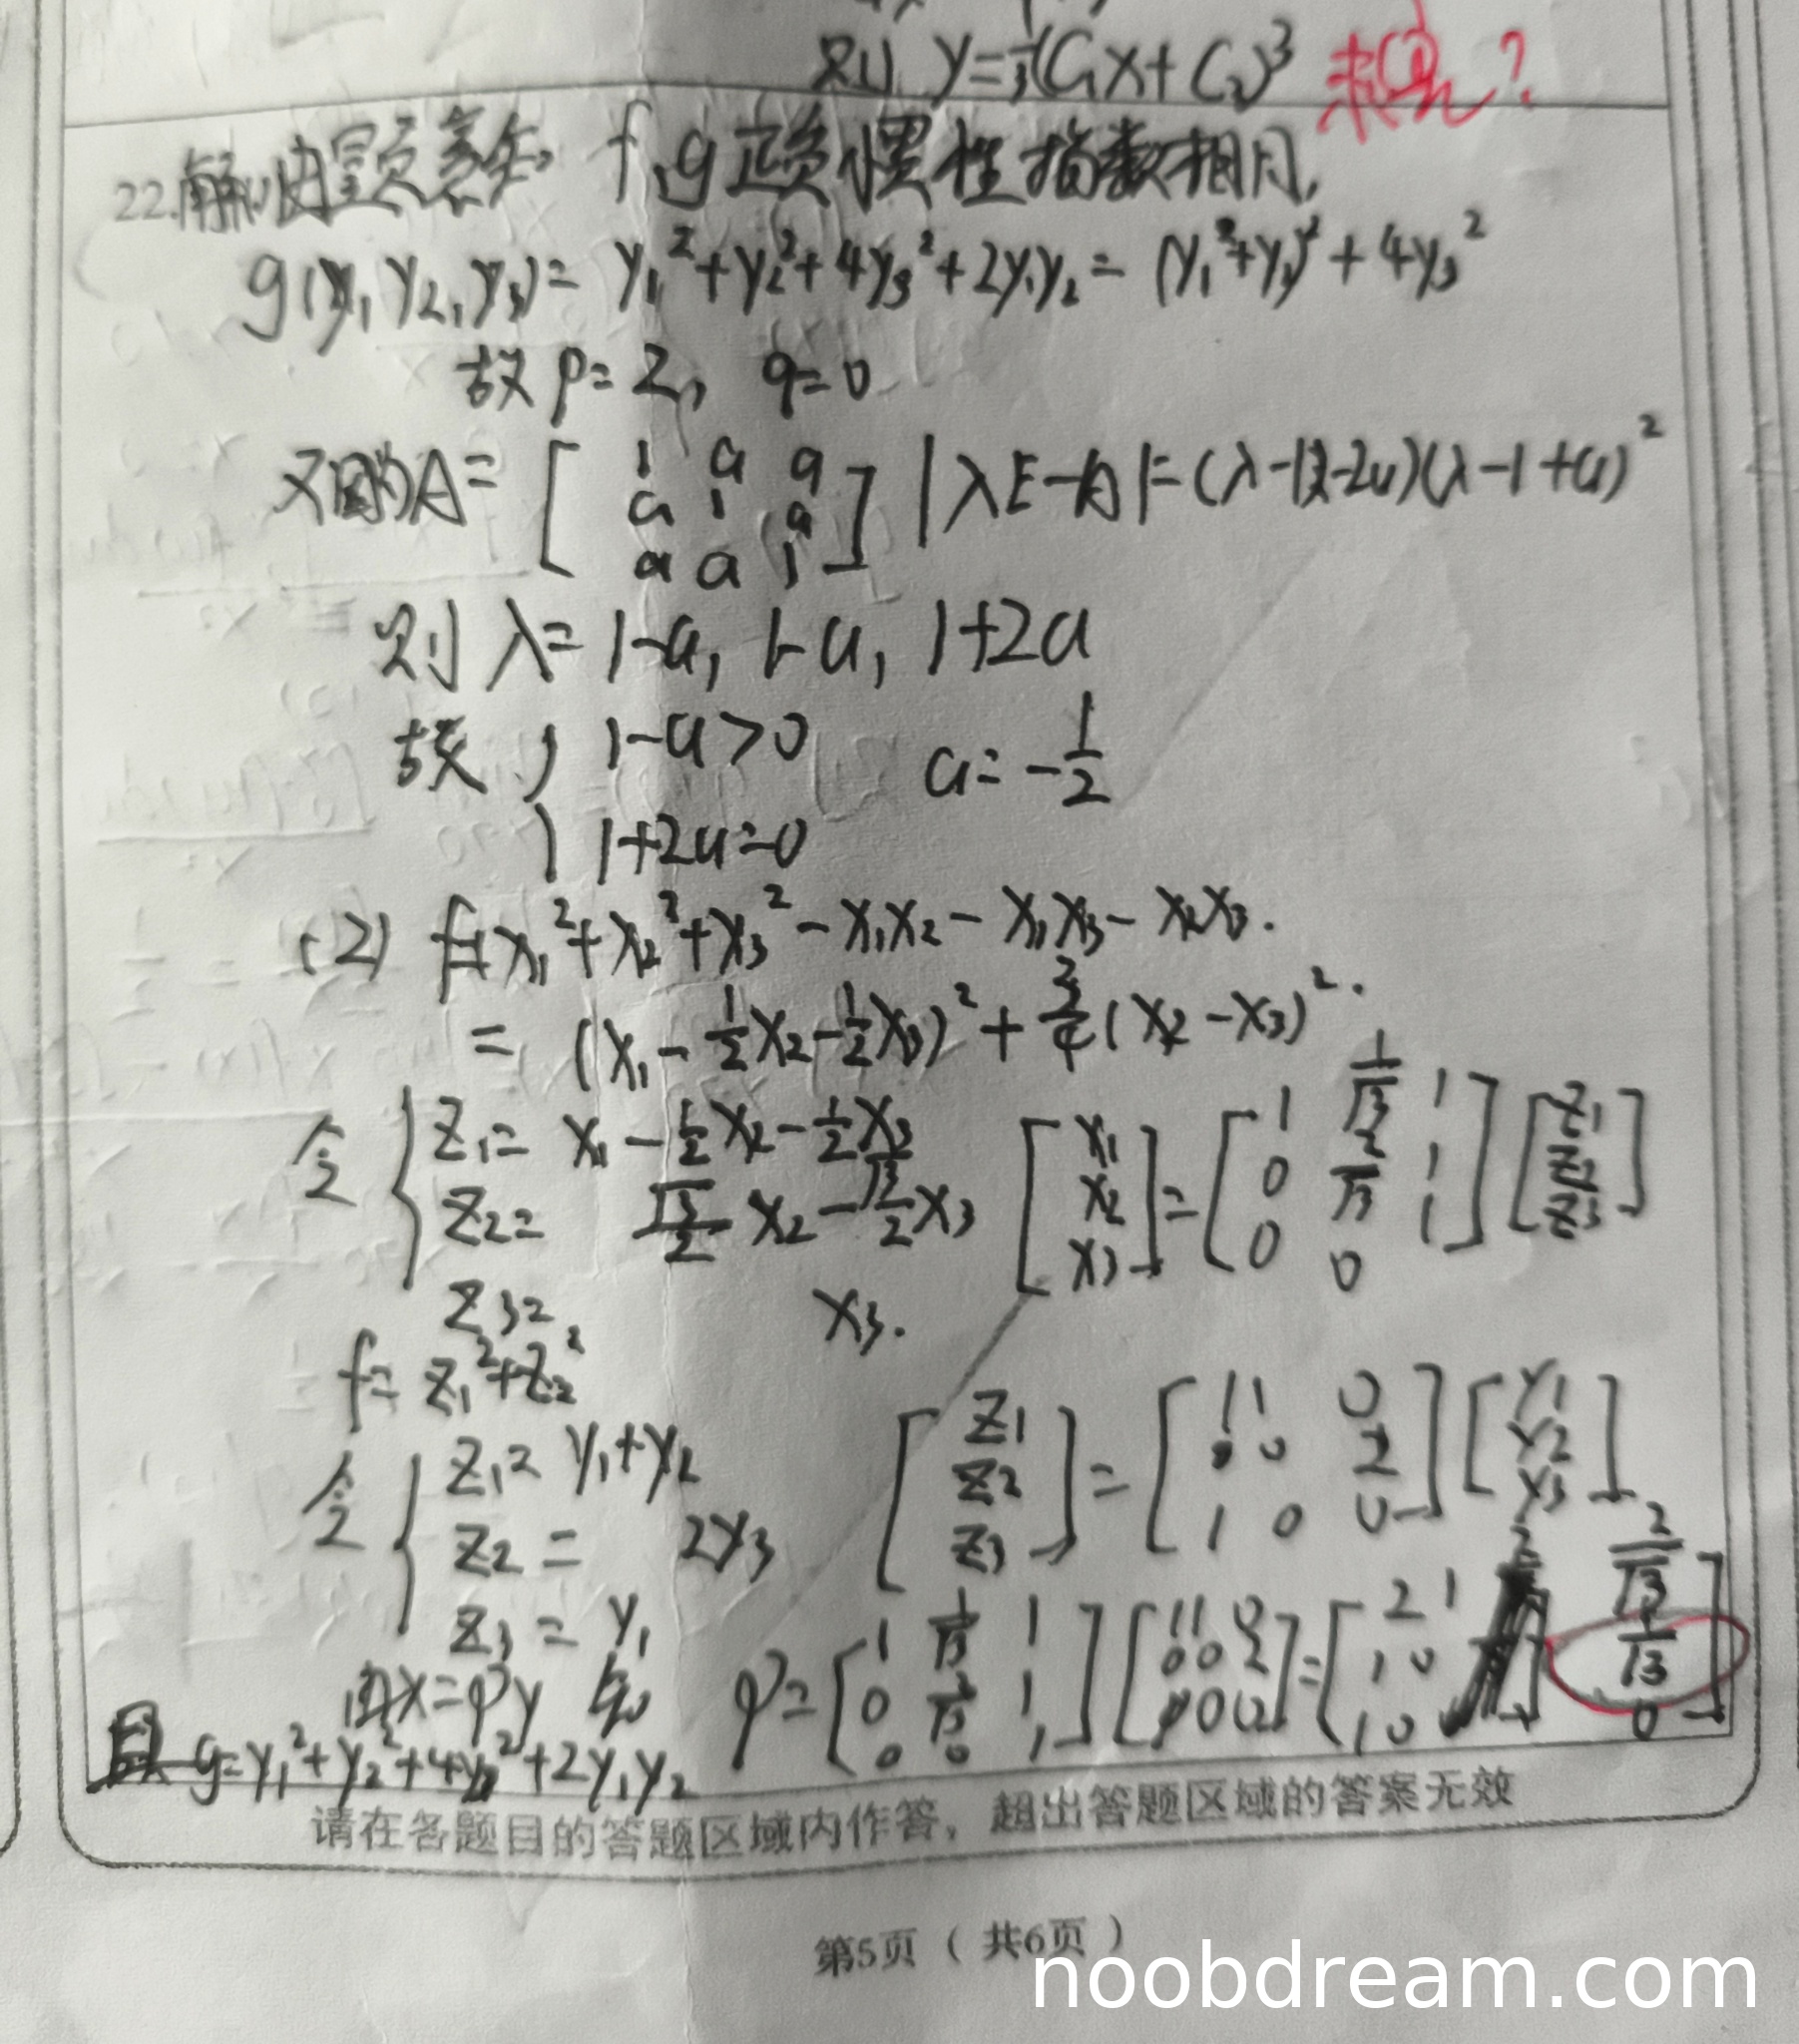 则 y=⅓(C₁x+C₂)³ 求C₁C₂?
22.解:由题意知 f,g正负惯性指数相同,
g(y₁,y₂,y₃)= y₁²+y₂²+4y₃²+2y₁y₂= (y₁+y₂)²+4y₃²
故 p=2, q=0
又因为A= [1 a a; a 1 a; a a 1] |λE-A|=(λ-1-2a)(λ-1+a)²
则 λ=1-a, 1-a, 1+2a
故 { 1-a>0 a=-1/2
1+2a=0
(2) f=x₁²+x₂²+x₃²-x₁x₂-x₁x₃-x₂x₃.
= (x₁-½x₂-½x₃)²+¾(x₂-x₃)².
令 { z₁= x₁-½x₂-½x₃ [x₁; x₂; x₃]=[1 1/√3 1; 0 2/√3 1; 0 0 1][z₁; z₂; z₃]
z₂= √3/2 x₂-√3/2 x₃
z₃= x₃.
f= z₁²+z₂²
令 { z₁= y₁+y₂ [z₁; z₂; z₃]=[1 1 0; 0 0 2; 1 0 0][y₁; y₂; y₃]
z₂= 2y₃
z₃= y₁
由x=Py 知 P=[1 1/√3 1; 0 2/√3 1; 0 0 1][1 1 0; 0 0 2; 1 0 0]=[2 1 2/√3; 1 0 4/√3; 1 0 0]
g=y₁²+y₂²+4y₃²+2y₁y₂
请在各题目的答题区域内作答，超出答题区域的答案无效
第5页（共6页）
noobdream.com